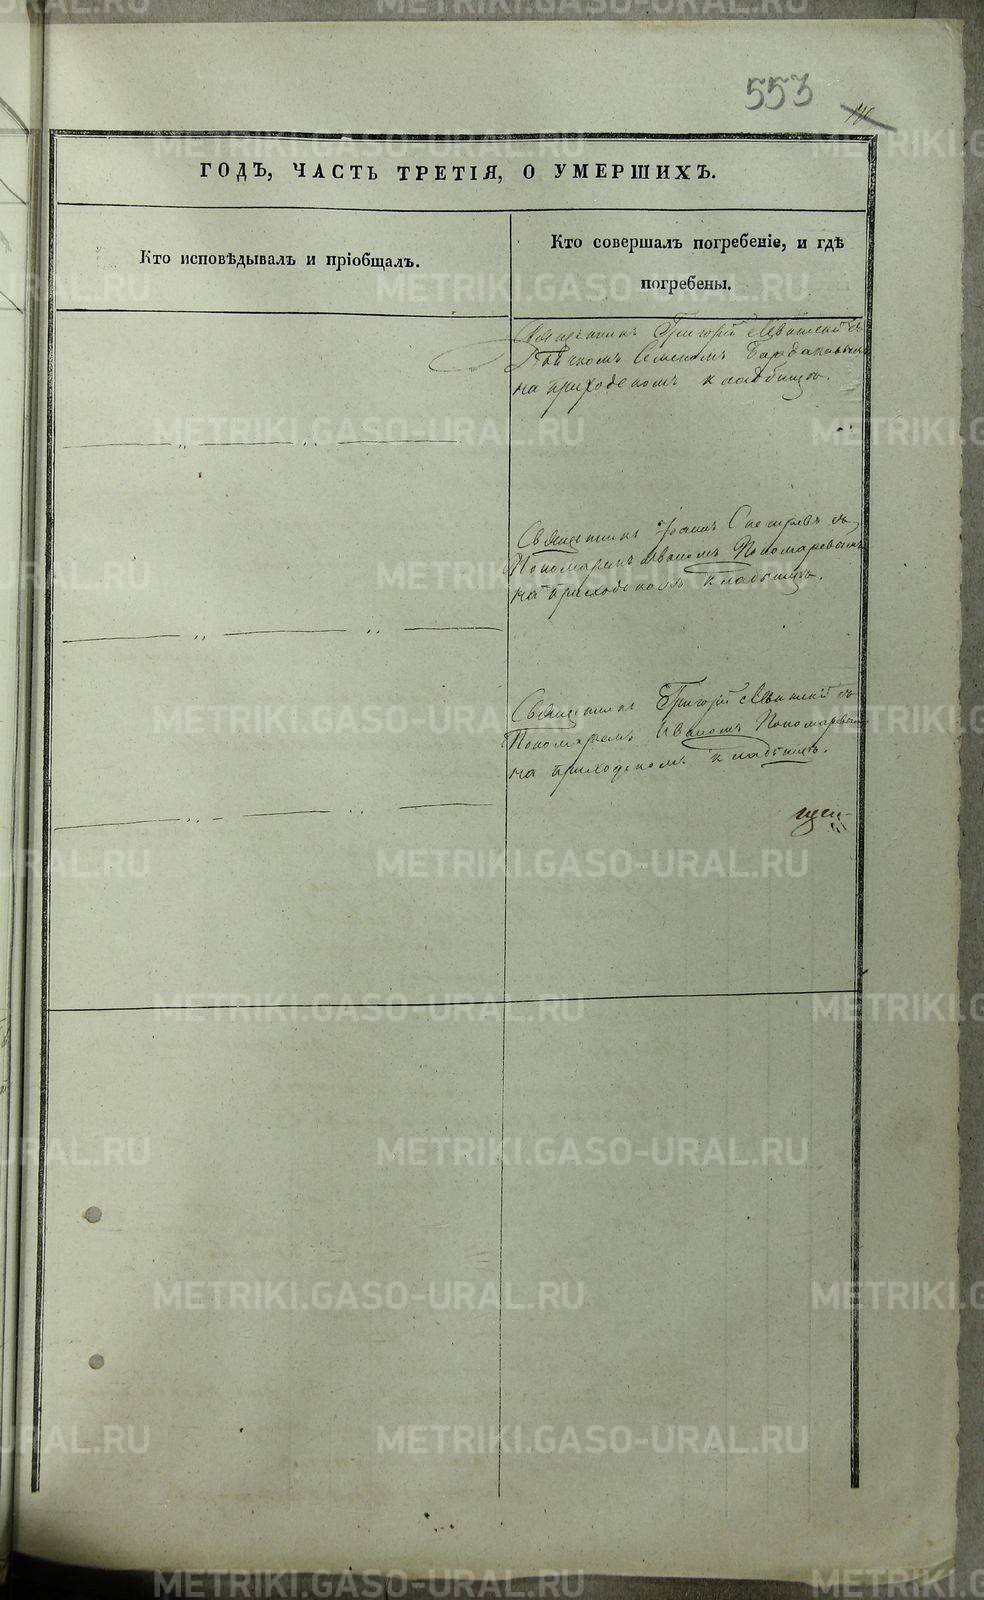 553
ГОДЪ, ЧАСТЬ ТРЕТІЯ, О УМЕРШИХЪ.
Кто исповѣдывалъ и пріобщалъ.
Кто совершалъ погребеніе, и гдѣ
погребены.
Священникъ Григорій съ
Дьячкомъ Семеномъ
на приходскомъ кладбищѣ.
Священникъ Іоаннъ съ
Пономаремъ Иваномъ Пономаревымъ
на приходскомъ кладбищѣ.
Священникъ Григорій съ
Пономаремъ Иваномъ Пономаревымъ
на приходскомъ кладбищѣ.
METRIKI.GASO-URAL.RU